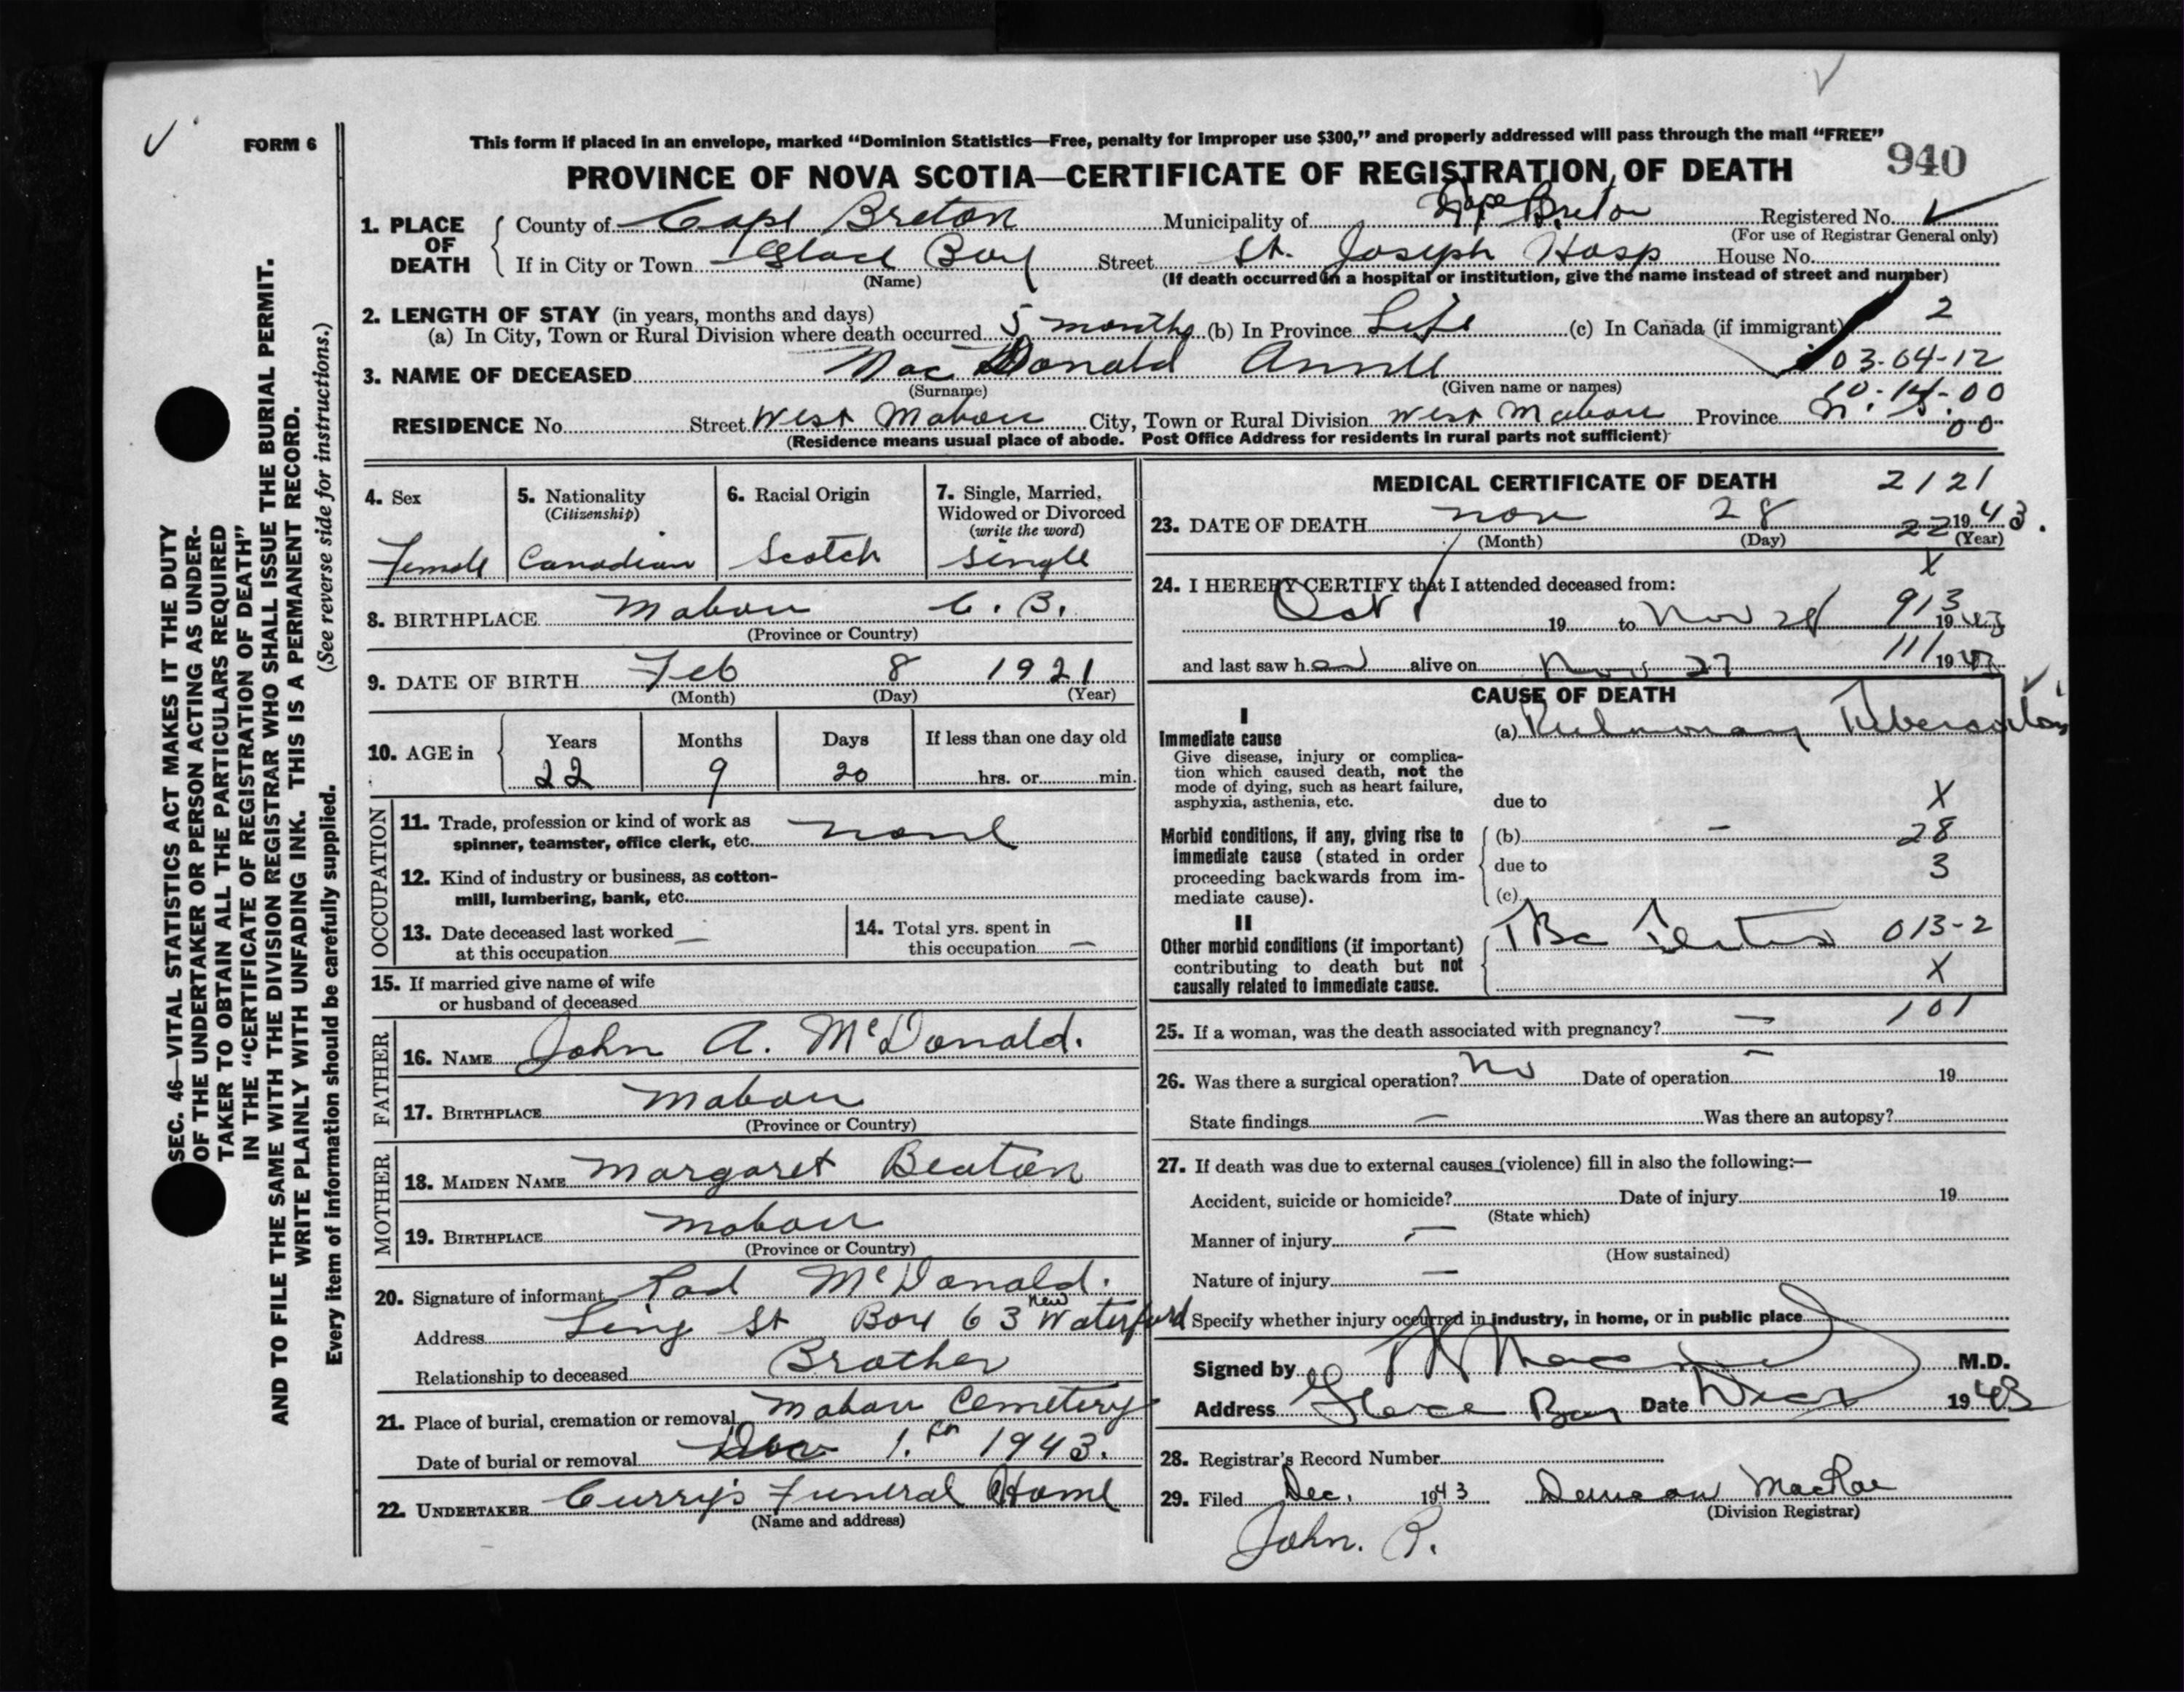 FORM 6
This form if placed in an envelope, marked “Dominion Statistics—Free, penalty for improper use $300,” and properly addressed will pass through the mail “FREE”
PROVINCE OF NOVA SCOTIA—CERTIFICATE OF REGISTRATION OF DEATH
940
1. PLACE OF DEATH
County of Cape Breton Municipality of Cape Breton Registered No.
(For use of Registrar General only)
If in City or Town Glace Bay Street St. Joseph Hosp House No.
(Name) (If death occurred in a hospital or institution, give the name instead of street and number)
2. LENGTH OF STAY (in years, months and days)
(a) In City, Town or Rural Division where death occurred 5 months (b) In Province Life (c) In Canada (if immigrant) 2
3. NAME OF DECEASED Mac Donald Annie 03-04-12
(Surname) (Given name or names) 10-14-00
RESIDENCE No. Street West Mabou City, Town or Rural Division West Mabou Province N. S. 00
(Residence means usual place of abode. Post Office Address for residents in rural parts not sufficient)
4. Sex
Female
5. Nationality
(Citizenship)
Canadian
6. Racial Origin
Scotch
7. Single, Married, Widowed or Divorced
(write the word)
Single
8. BIRTHPLACE Mabou C. B.
(Province or Country)
9. DATE OF BIRTH Feb 8 1921
(Month) (Day) (Year)
10. AGE in Years Months Days If less than one day old
22 9 20 hrs. or min.
OCCUPATION
11. Trade, profession or kind of work as spinner, teamster, office clerk, etc. None
12. Kind of industry or business, as cotton-mill, lumbering, bank, etc.
13. Date deceased last worked at this occupation —
14. Total yrs. spent in this occupation —
15. If married give name of wife or husband of deceased
FATHER
16. NAME John A. McDonald.
17. BIRTHPLACE Mabou
(Province or Country)
MOTHER
18. MAIDEN NAME Margaret Beaton
19. BIRTHPLACE Mabou
(Province or Country)
20. Signature of informant Rod McDonald.
Address Ling St Box 63 New Waterford
Relationship to deceased Brother
21. Place of burial, cremation or removal Mabou Cemetery
Date of burial or removal Dec 1. 1943.
22. UNDERTAKER Curry's Funeral Home
(Name and address)
MEDICAL CERTIFICATE OF DEATH 2121
23. DATE OF DEATH Nov 28 22 1943.
(Month) (Day) (Year)
X
24. I HEREBY CERTIFY that I attended deceased from:
Oct 1 19 to Nov 28 913 1943
and last saw her alive on Nov 27 111 1943
CAUSE OF DEATH
I
Immediate cause
Give disease, injury or complication which caused death, not the mode of dying, such as heart failure, asphyxia, asthenia, etc.
(a) Pulmonary Tuberculosis
due to X
Morbid conditions, if any, giving rise to immediate cause (stated in order proceeding backwards from immediate cause).
(b) — 28
due to 3
(c)
II
Other morbid conditions (if important) contributing to death but not causally related to immediate cause.
TBc 013-2
X
101
25. If a woman, was the death associated with pregnancy? —
26. Was there a surgical operation? No Date of operation — 19
State findings — Was there an autopsy?
27. If death was due to external causes (violence) fill in also the following:—
Accident, suicide or homicide? Date of injury 19
(State which)
Manner of injury —
(How sustained)
Nature of injury —
Specify whether injury occurred in industry, in home, or in public place
Signed by M.D.
Address Glace Bay Date Dec 1943
28. Registrar's Record Number
29. Filed Dec. 1943 MacRae
(Division Registrar)
John. R.
SEC. 46—VITAL STATISTICS ACT MAKES IT THE DUTY
OF THE UNDERTAKER OR PERSON ACTING AS UNDER-
TAKER TO OBTAIN ALL THE PARTICULARS REQUIRED
IN THE “CERTIFICATE OF REGISTRATION OF DEATH”
AND TO FILE THE SAME WITH THE DIVISION REGISTRAR WHO SHALL ISSUE THE BURIAL PERMIT.
WRITE PLAINLY WITH UNFADING INK. THIS IS A PERMANENT RECORD.
Every item of information should be carefully supplied. (See reverse side for instructions.)